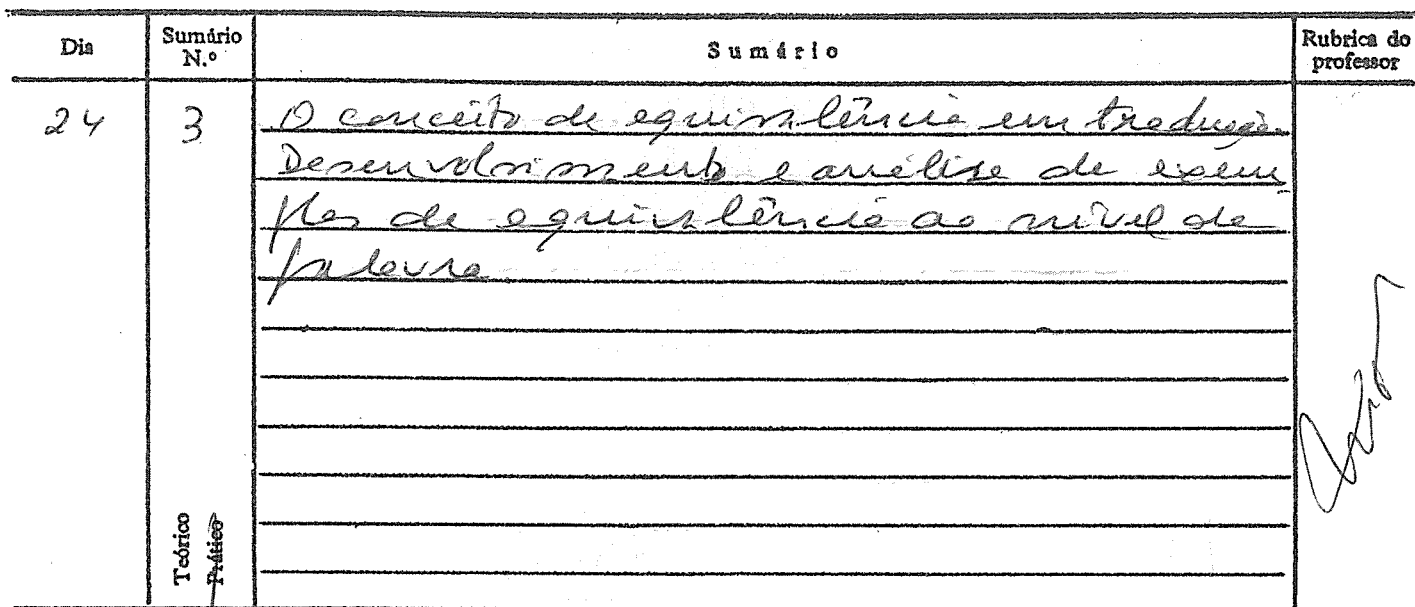 Dia Sumário N.º Sumário Rubrica do professor
24 3 O conceito de equivalência em tradução.
Desenvolvimento e análise de exem
plos de equivalência ao nível de
palavra
Teórico
Prático